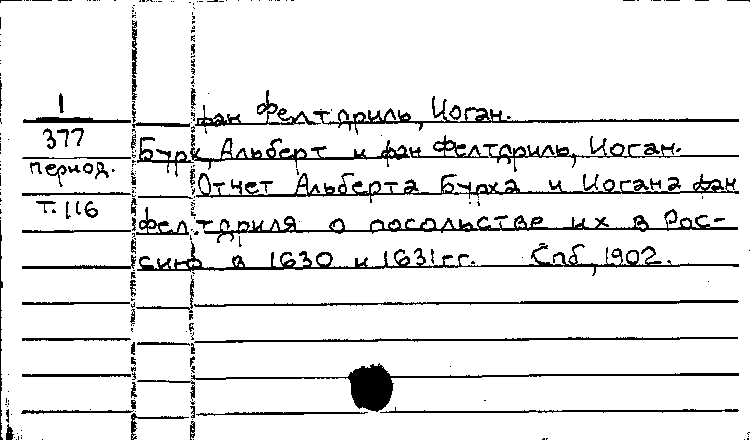 1
377
период.
Т. 116
фан Фелтдриль, Иоган.
Бурх, Альберт и фан Фелтдриль, Иоган.
Отчет Альберта Бурха и Иогана фан
Фелтдриля о посольстве их в Рос-
сию в 1630 и 1631 гг. Спб, 1902.